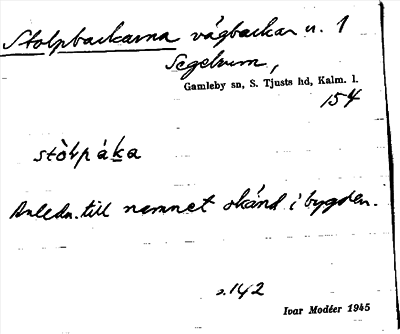 Stolpbackarna vägbackar n. 1
Segelrum,
Gamleby sn, S. Tjusts hd, Kalm. l.
154
stòlpáka
Anledn. till namnet okänd i bygden.
s. 142
Ivar Modéer 1945